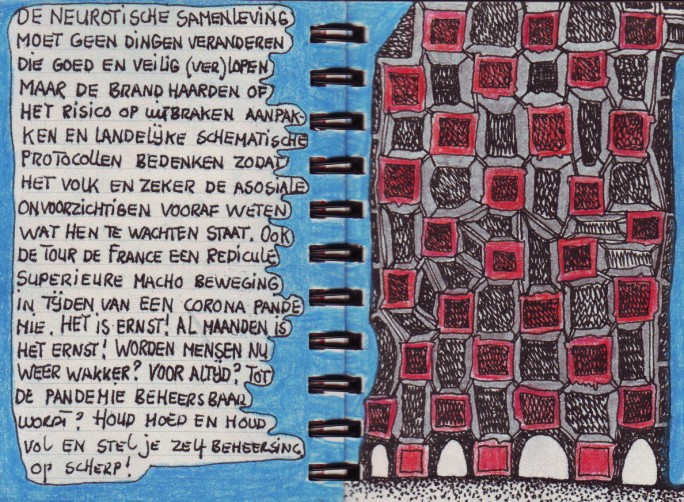 DE NEUROTISCHE SAMENLEVING
MOET GEEN DINGEN VERANDEREN
DIE GOED EN VEILIG (VER)LOPEN
MAAR DE BRANDHAARDEN OF
HET RISICO OP UITBRAKEN AANPAK-
KEN EN LANDELIJKE SCHEMATISCHE
PROTOCOLLEN BEDENKEN ZODAT
HET VOLK EN ZEKER DE ASOSIALE
ONVOORZICHTIGEN VOORAF WETEN
WAT HEN TE WACHTEN STAAT. OOK
DE TOUR DE FRANCE EEN REDICULE
SUPERIEURE MACHO BEWEGING
IN TIJDEN VAN EEN CORONA PANDE
MIE. HET IS ERNST! AL MAANDEN IS
HET ERNST! WORDEN MENSEN NU
WEER WAKKER? VOOR ALTIJD? TOT
DE PANDEMIE BEHEERSBAAR
WORDT? HOUD MOED EN HOUD
VOL EN STEL JE ZELF BEHEERSING
OP SCHERP!